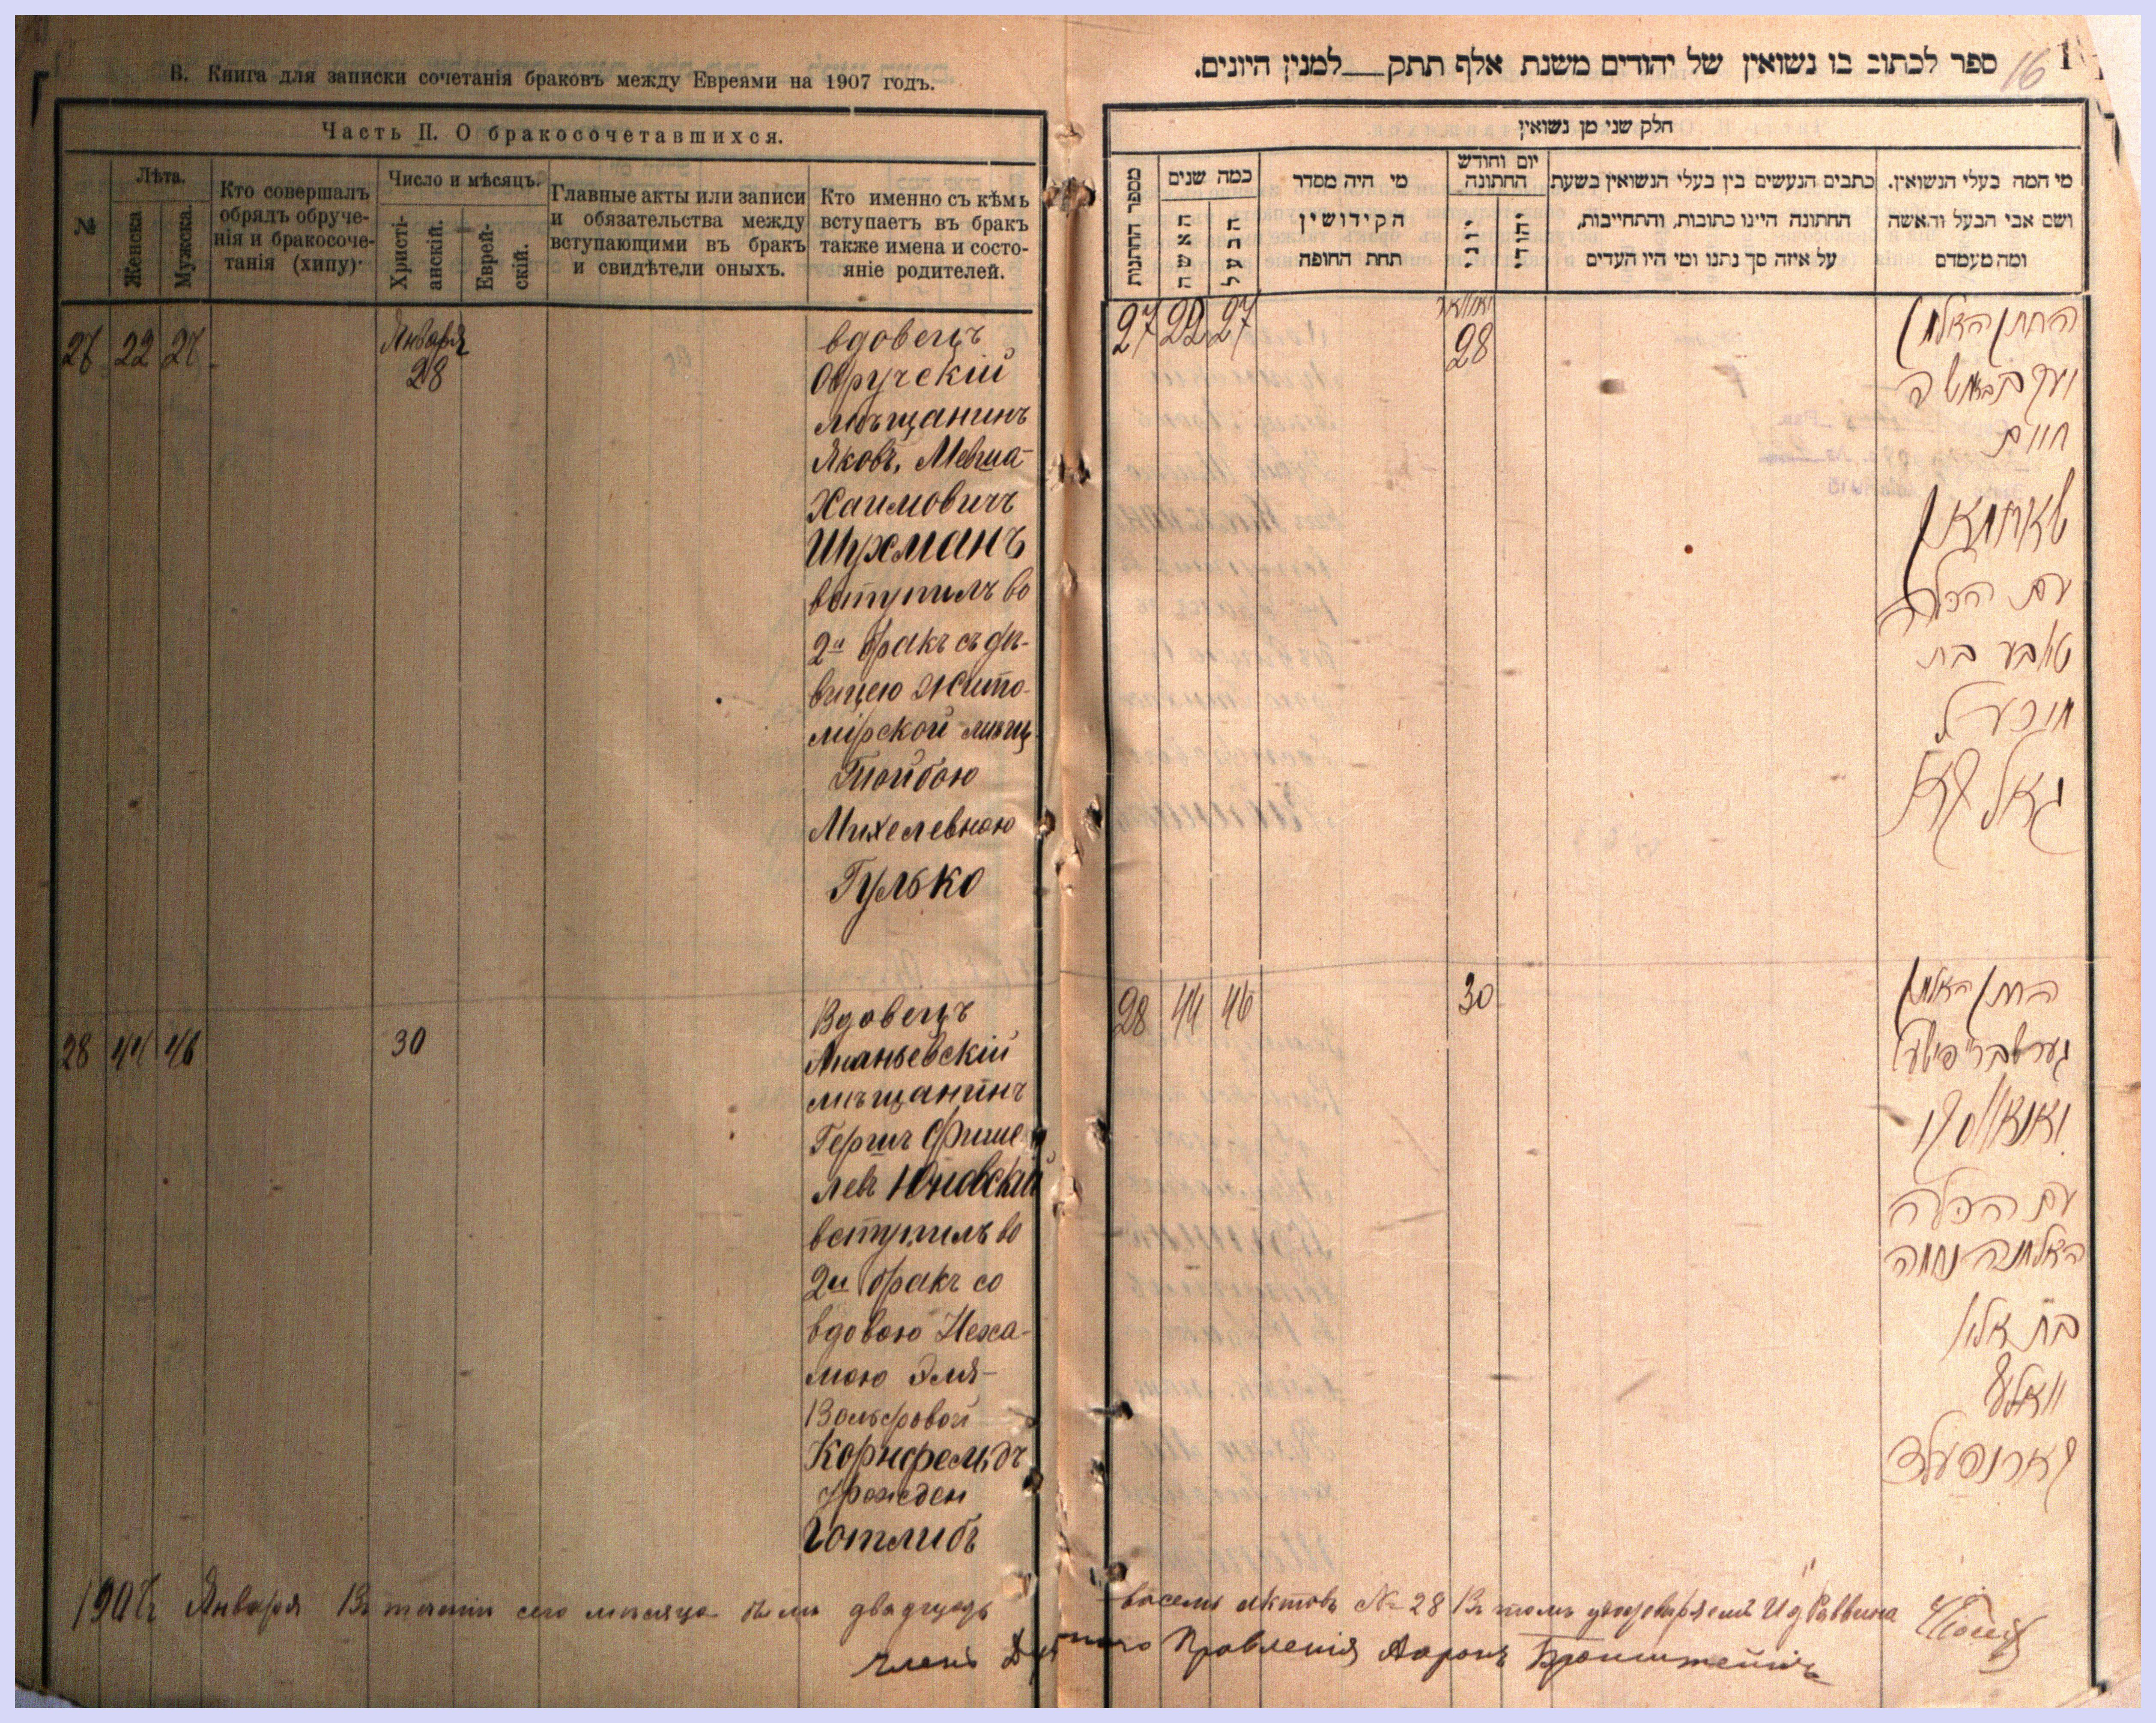 В. Книга для записки сочетанія браковъ между Евреями на 1907 годъ.
Часть II. О бракосочетавшихся.
№
Лѣта.
Женска
Мужска.
Кто совершалъ
обрядъ обруче-
нія и бракосоче-
танія (хипу)·
Число и мѣсяцъ.
Христі-
анскій.
Еврей-
скій.
Главные акты или записи
и обязательства между
вступающими въ бракъ
и свидѣтели оныхъ.
Кто именно съ кѣмъ
вступаетъ въ бракъ
также имена и состо-
яніе родителей.
27 22 27
Января
28
вдовецъ
Овручскій
мѣщанинъ
Яковъ, Мевша-
Хаимовичъ
Шухманъ
вступилъ во
2й бракъ съ дѣ-
вицею Жито-
мірской мѣщ.
Тойбою
Михелевною
Гулько
28 44 46
30
Вдовецъ
Ананьевскій
мѣщанинъ
Гершъ Фише
левъ Юновскій
вступилъ во
2й бракъ со
вдовою Неха-
мою Эля-
Вольфовой
Корнфельдъ
урожден
Готлибъ
ספר לכתוב בו נשואין של יהודים משנת אלף תתק__למנין היונים.
16
1
חלק שני מן נשואין
מספר החתנות
כמה שנים
האשה
הבעל
מי היה מסדר
הקידושין
תחת החופה
יום וחודש
החתונה
יוני
יהודי
כתבים הנעשים בין בעלי הנשואין בשעת
החתונה היינו כתובות, והתחייבות,
על איזה סך נתנו ומי היו העדים
מי המה בעלי הנשואין.
ושם אבי הבעל והאשה
ומה מעמדם
27 22 27
יאנוואר
28
החתן האלמן
חיים
שוחמאן
עם הכלה
טאבע בת
מיכעל
28 44 46
30
החתן האלמן
עם הכלה
האלמנה נחמה
בת אלי
וואלף
קארנפעלד
1907 г Января В теченіи сего месяца были двадцать восемь актовъ № 28 В томъ удостоверяемъ И д Раввина
Членъ Духовнаго Правленія Ааронъ Бронштейнъ